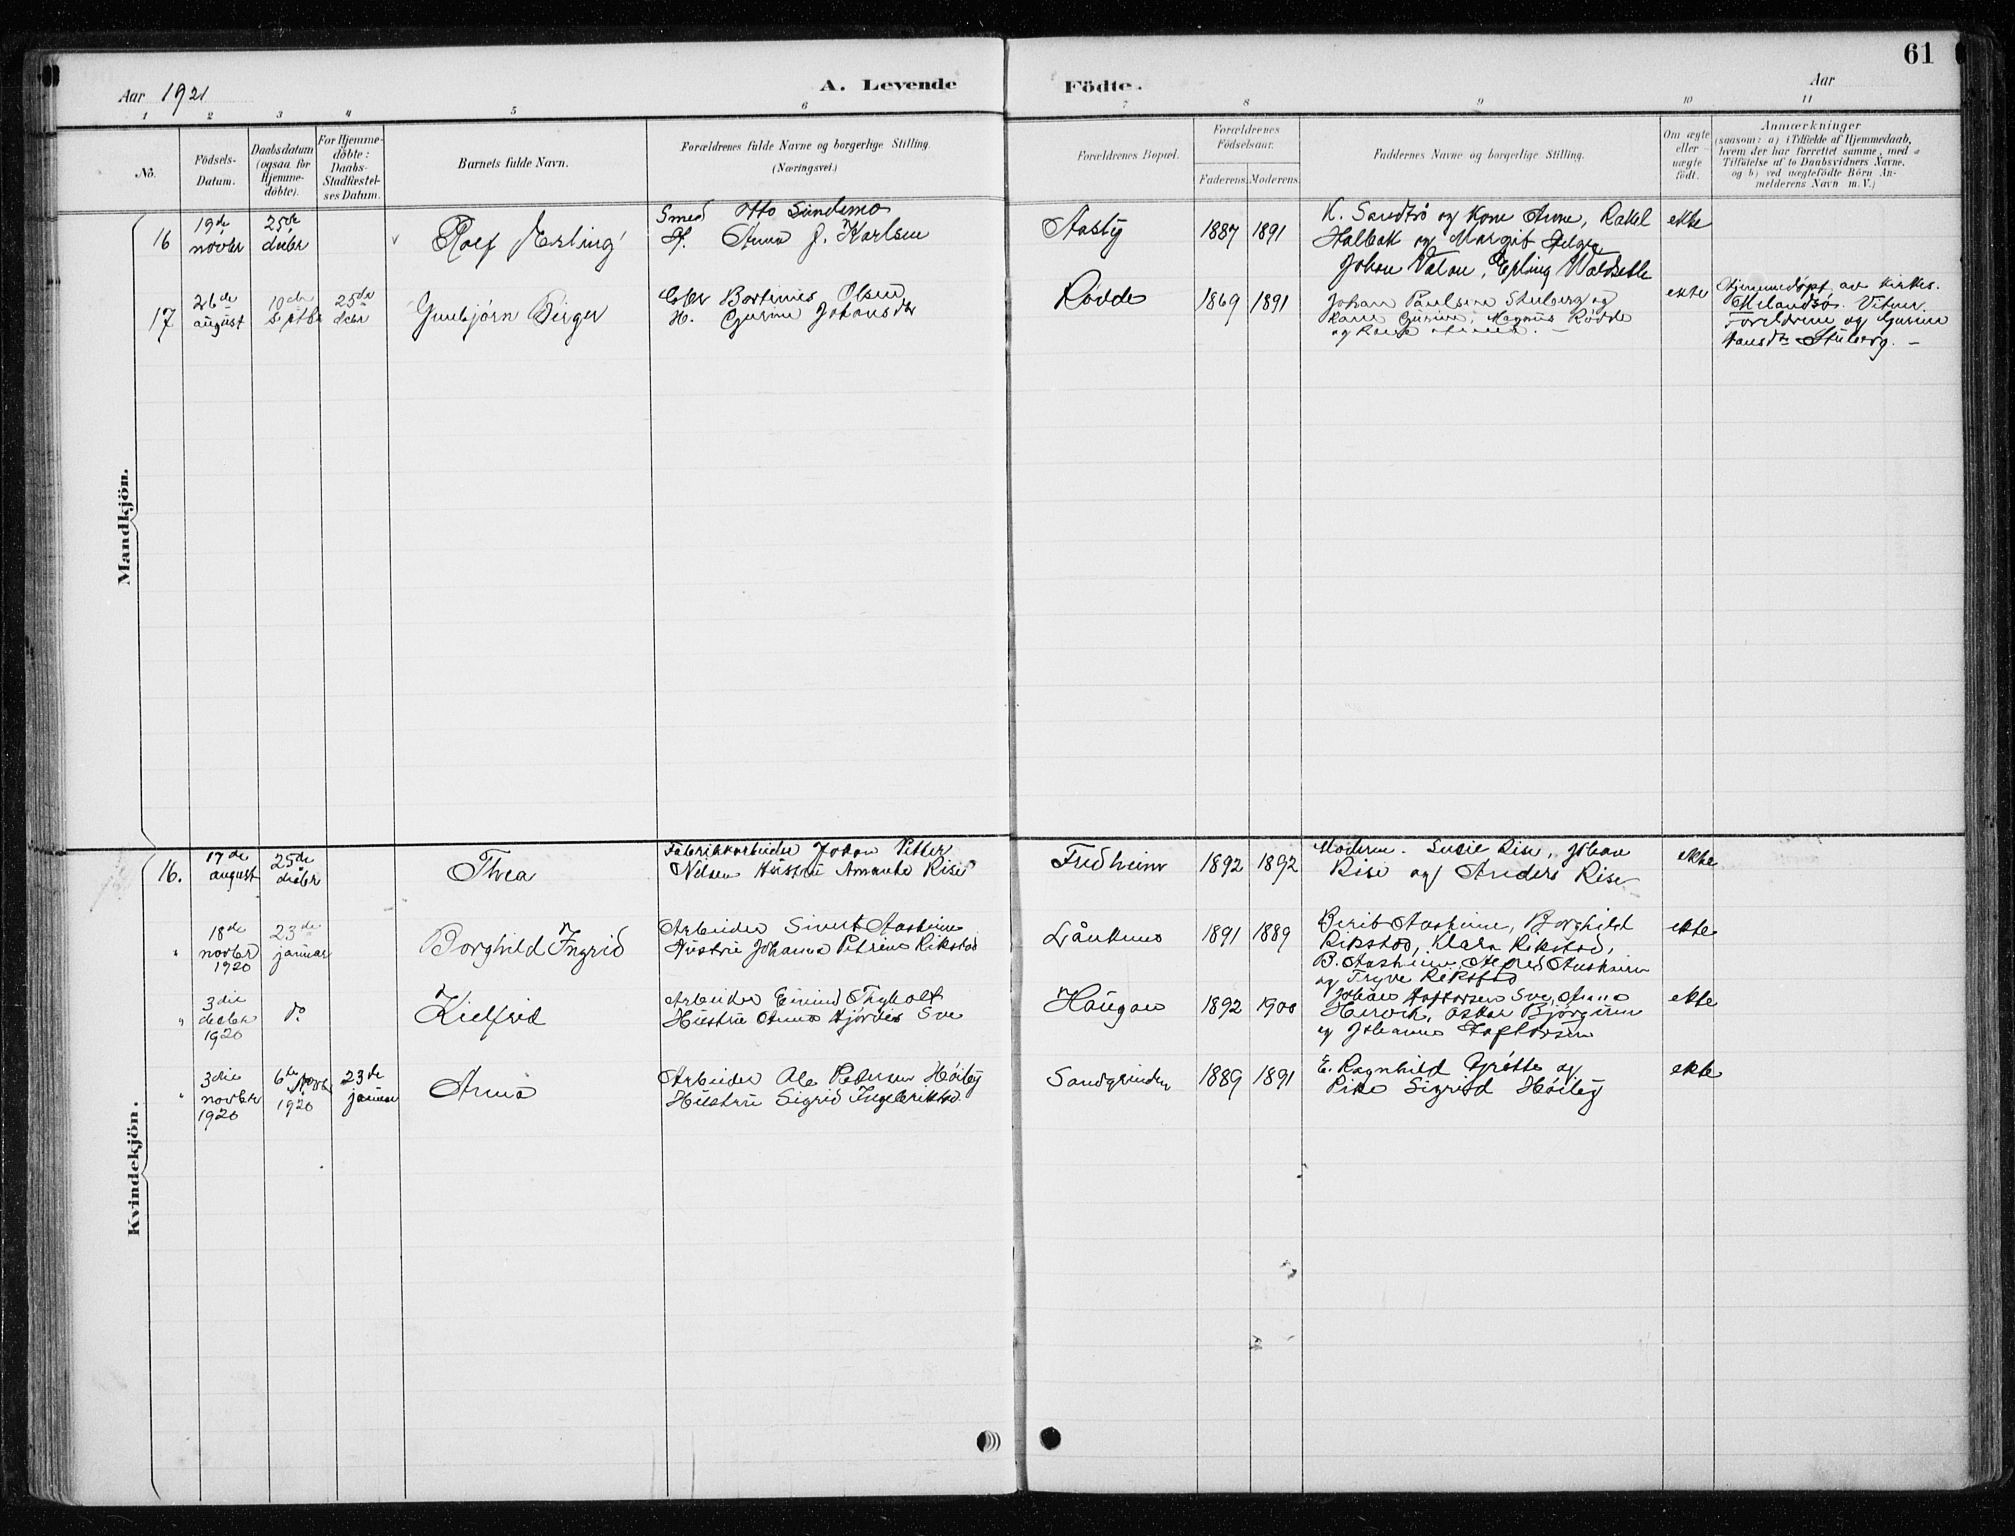 61
Aar 1921 A. Levende Födte. Aar
1 2 3 4 5 6 7 8 9 10 11
No.
Födsels-Datum.
Daabsdatum (ogsaa for Hjemmedöbte).
For Hjemmedöbte: Daabs-Stadfæstelses Datum.
Barnets fulde Navn.
Forældrenes fulde Navne og borgerlige Stilling.
(Næringsvei.)
Forældrenes Bopæl.
Forældrenes Födselsaar.
Faderens. Moderens.
Faddernes Navne og borgerlige Stilling.
Om ægte eller uægte födt.
Anmærkninger
(saasom: a) i Tilfælde af Hjemmedaab,
hvem der har forrettet samme, med
Tilföielse af to Daabsvidners Navne.
og b) ved uægtefödte Börn Anmelderens Navn m. V.)
Mandkjön.
16 19de novbr 25de decbr Rolf Erling
Smed Otto Sundsmo
H. Anna J. Karlsen
Aasby 1887 1891
K. Sandtrö og Kone Anne, Rakel
Halbak og Margit Helge
Johan Valan, Erling
ekte
17 26de august 10de septbr 25de decbr Gunbjørn Birger
Bortinus Olsen
H. Gurine Johansdtr
Rödde 1869 1891
Johan Paulsen Stuberg og
Kone Gurine, Magnus Rödde
og
ekte
Hjemmedöpt av kirkes.
Melandsø. Vitner
Foreldrene og Gurine
Hansdtr Stuberg. –
Kvindekjön.
16. 17de august 25de decbr Thea
Fabrikkarbeider Johan Petter
Nelsen Hustru Amanda Rise
Fredheim 1892 1892
Moderen. Susie Rise, Johan
Rise og Anders Rise
ekte
" 18de novbr 1920 23de januar Borghild Ingrid
Arbeider Sivert Aasheim
Hustru Johanna Petrine Rikstad
Lånkmo 1891 1889
Berit Aasheim, Borghild
Rikstad, Klara Rikstad,
B. Aasheim, Alfred Aasheim
og Trygve Rikstad
ekte
" 3die decbr 1920 do Kielfrid
Arbeider Eivind Thyholt
Hustru Anna Hjördis Sve
Haugan 1892 1900
Johan Hoftorsen Sve, Anna
Hervik, Oskar Bjørgum
og Johanna Haftorsen
ekte
" 3die novbr 1920 6te Novbr 1920 23de januar Anna
Arbeider Ole Petersen Høiby
Hustru Sigrid Ingebriktsd.
Sandgrinden 1889 1891
E. Ragnhild Grøtte og
Pike Sigrid Høiby
ekte